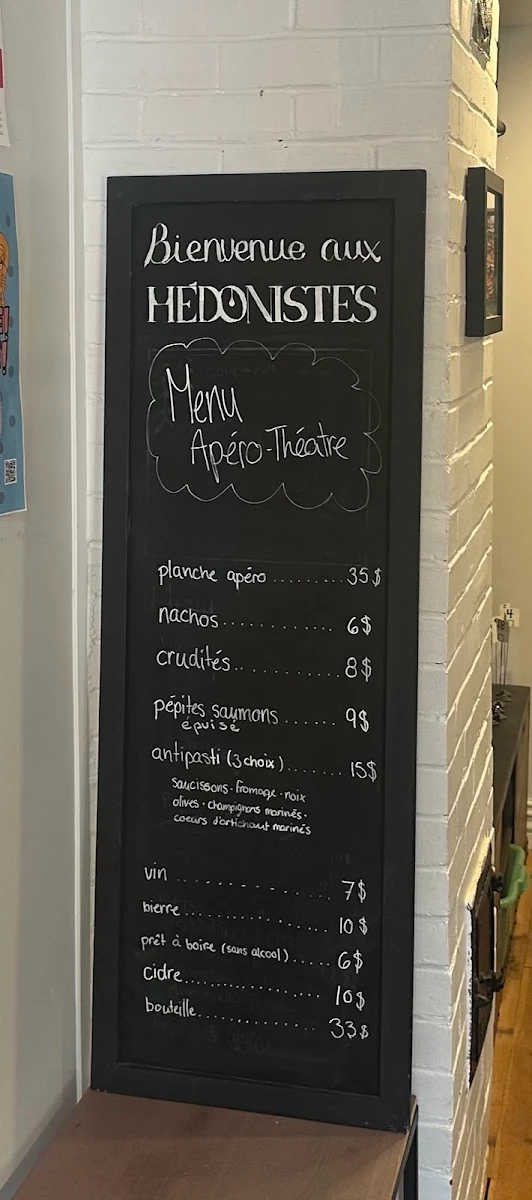 Bienvenue aux
HÉDONISTES
Menu
Apéro-Théatre
planche apéro ......... 35$
nachos ............. 6$
crudités ............ 8$
pépites saumons ...... 9$
épuisé
antipasti (3 choix) ....... 15$
saucissons · fromage · noix
olives · champignons marinés ·
coeurs d'artichaut marinés
vin ............... 7$
bierre ................ 10$
prêt à boire (sans alcool) ..... 6$
cidre ................ 10$
bouteille .............. 33$